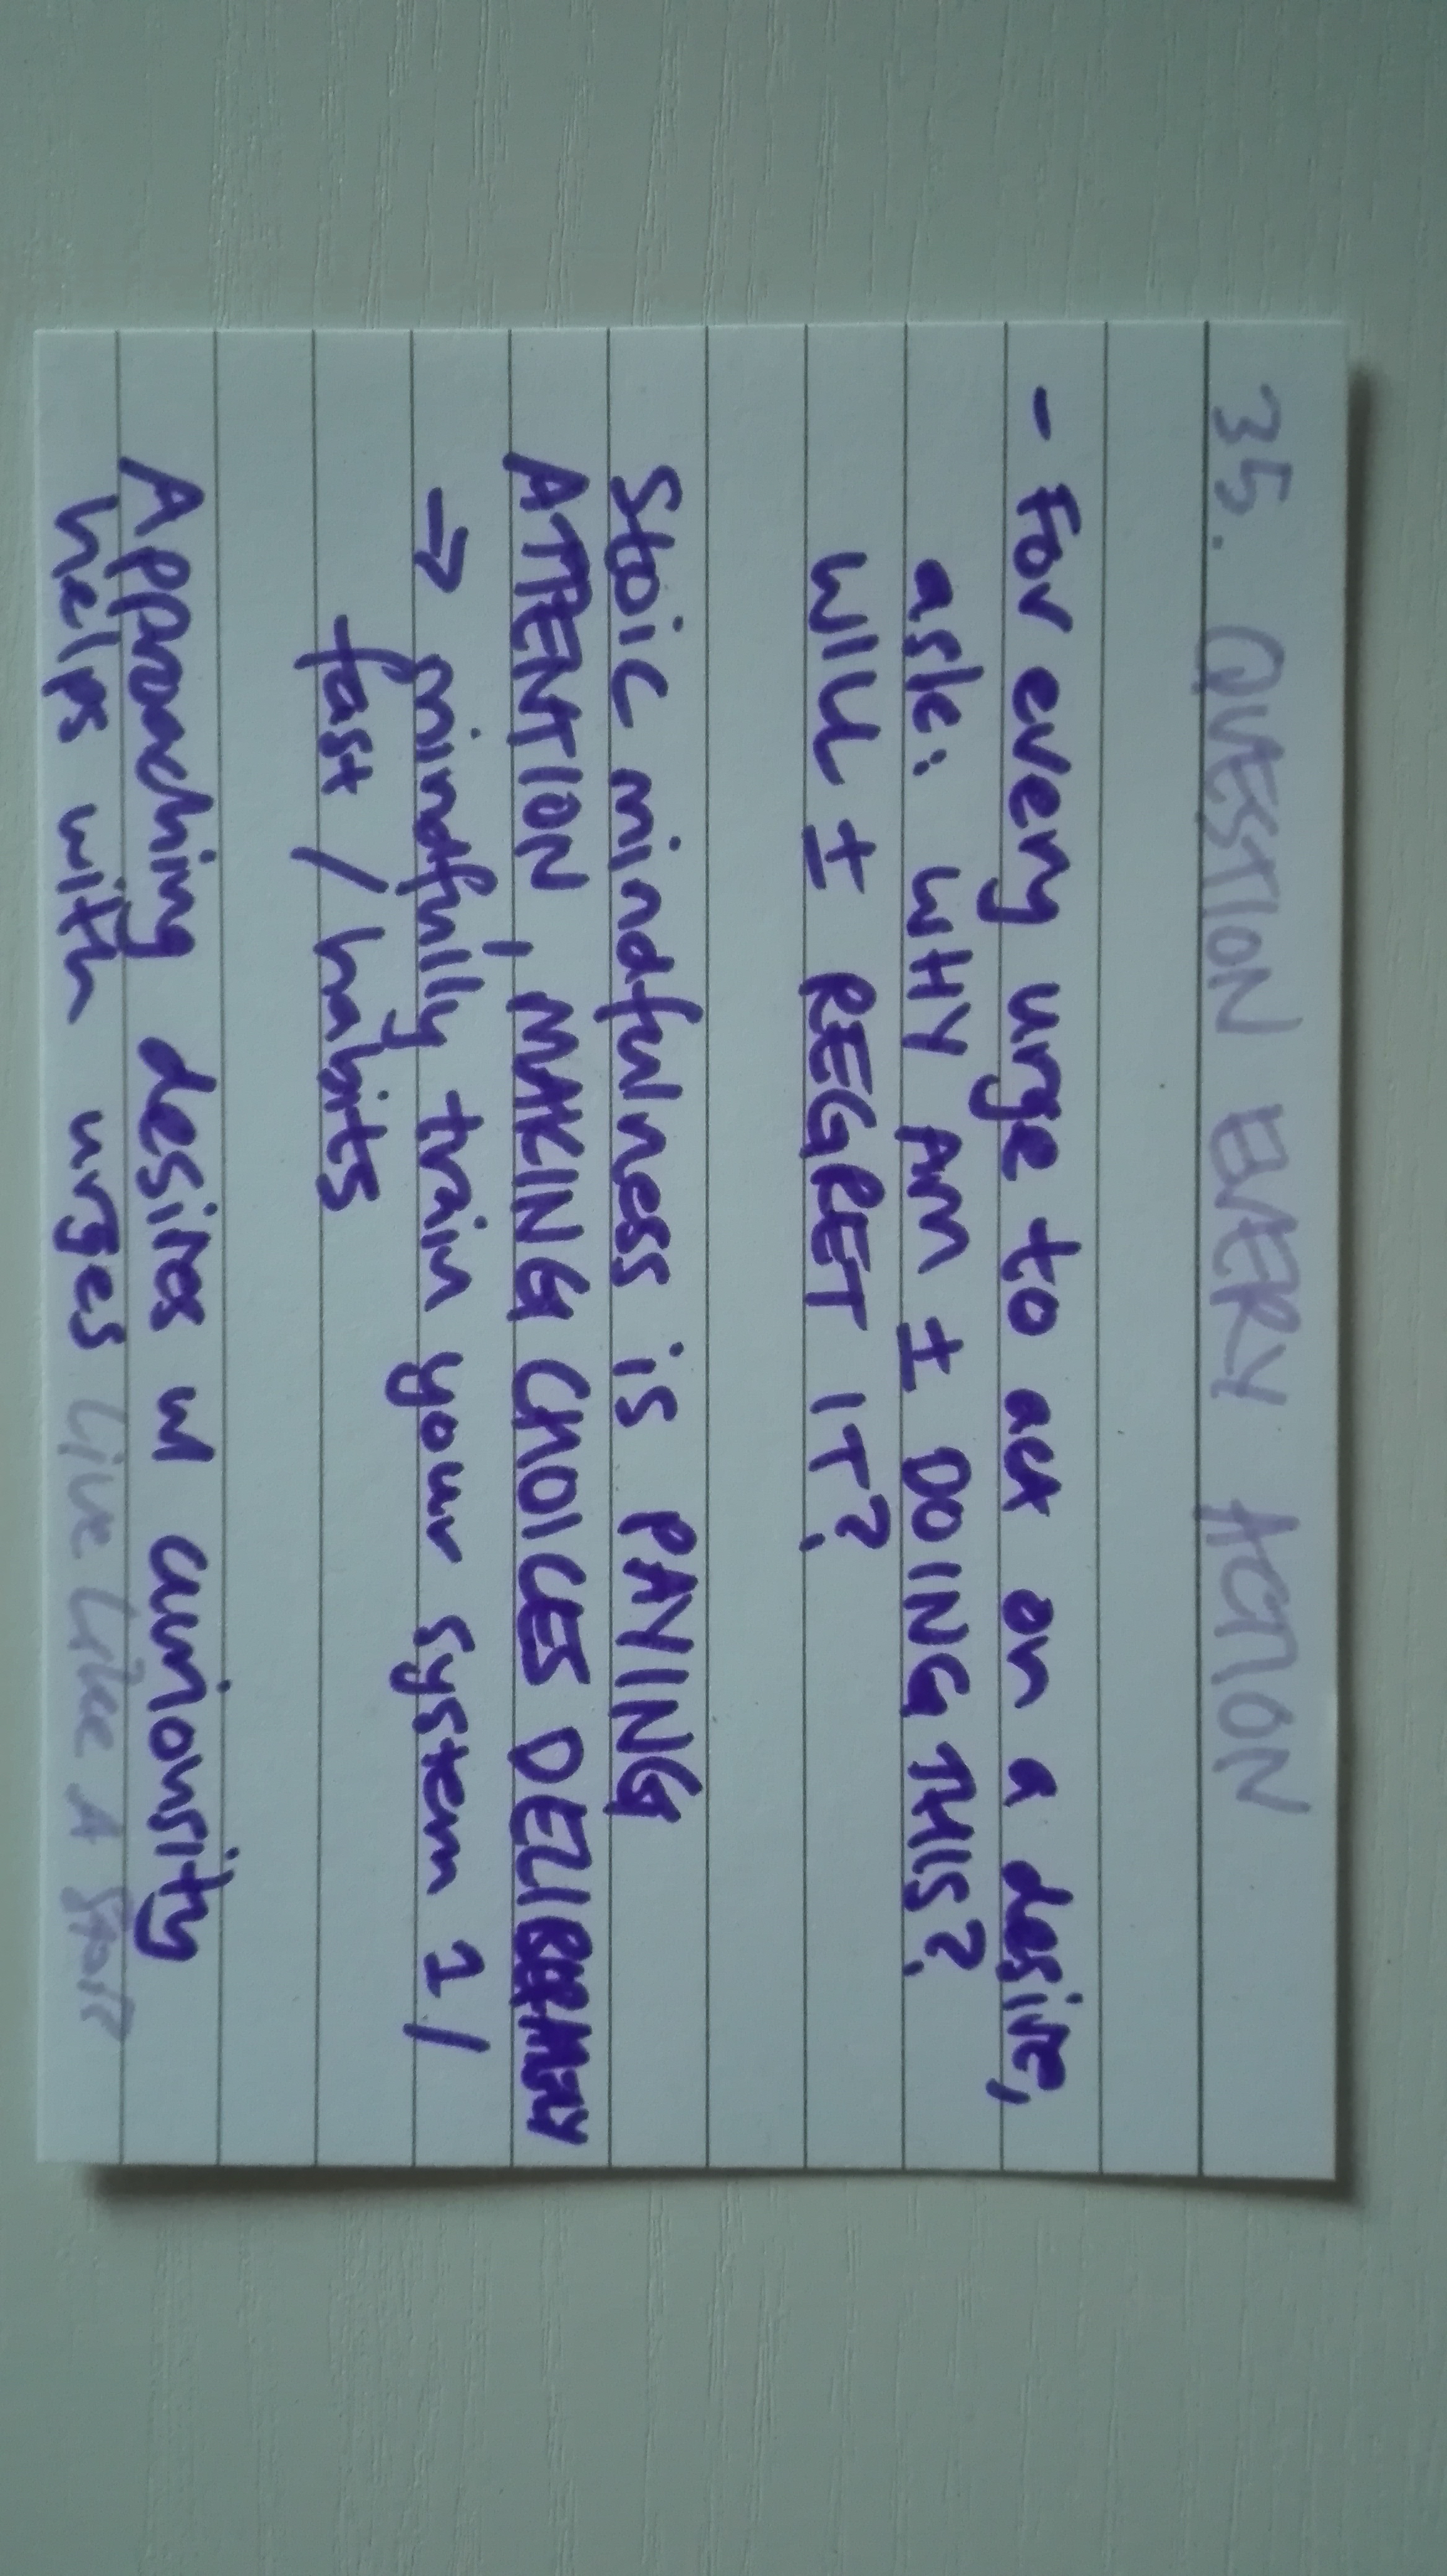 35. QUESTION EVERY ACTION
- For every urge to act on a desire,
ask: WHY AM I DOING THIS?
WILL I REGRET IT?
Stoic mindfulness is PAYING
ATTENTION, MAKING CHOICES DELIBERATELY
→ mindfully train your system 1/
fast / habits
Approaching desires w/ curiousity
helps with urges Live Like A Stoic